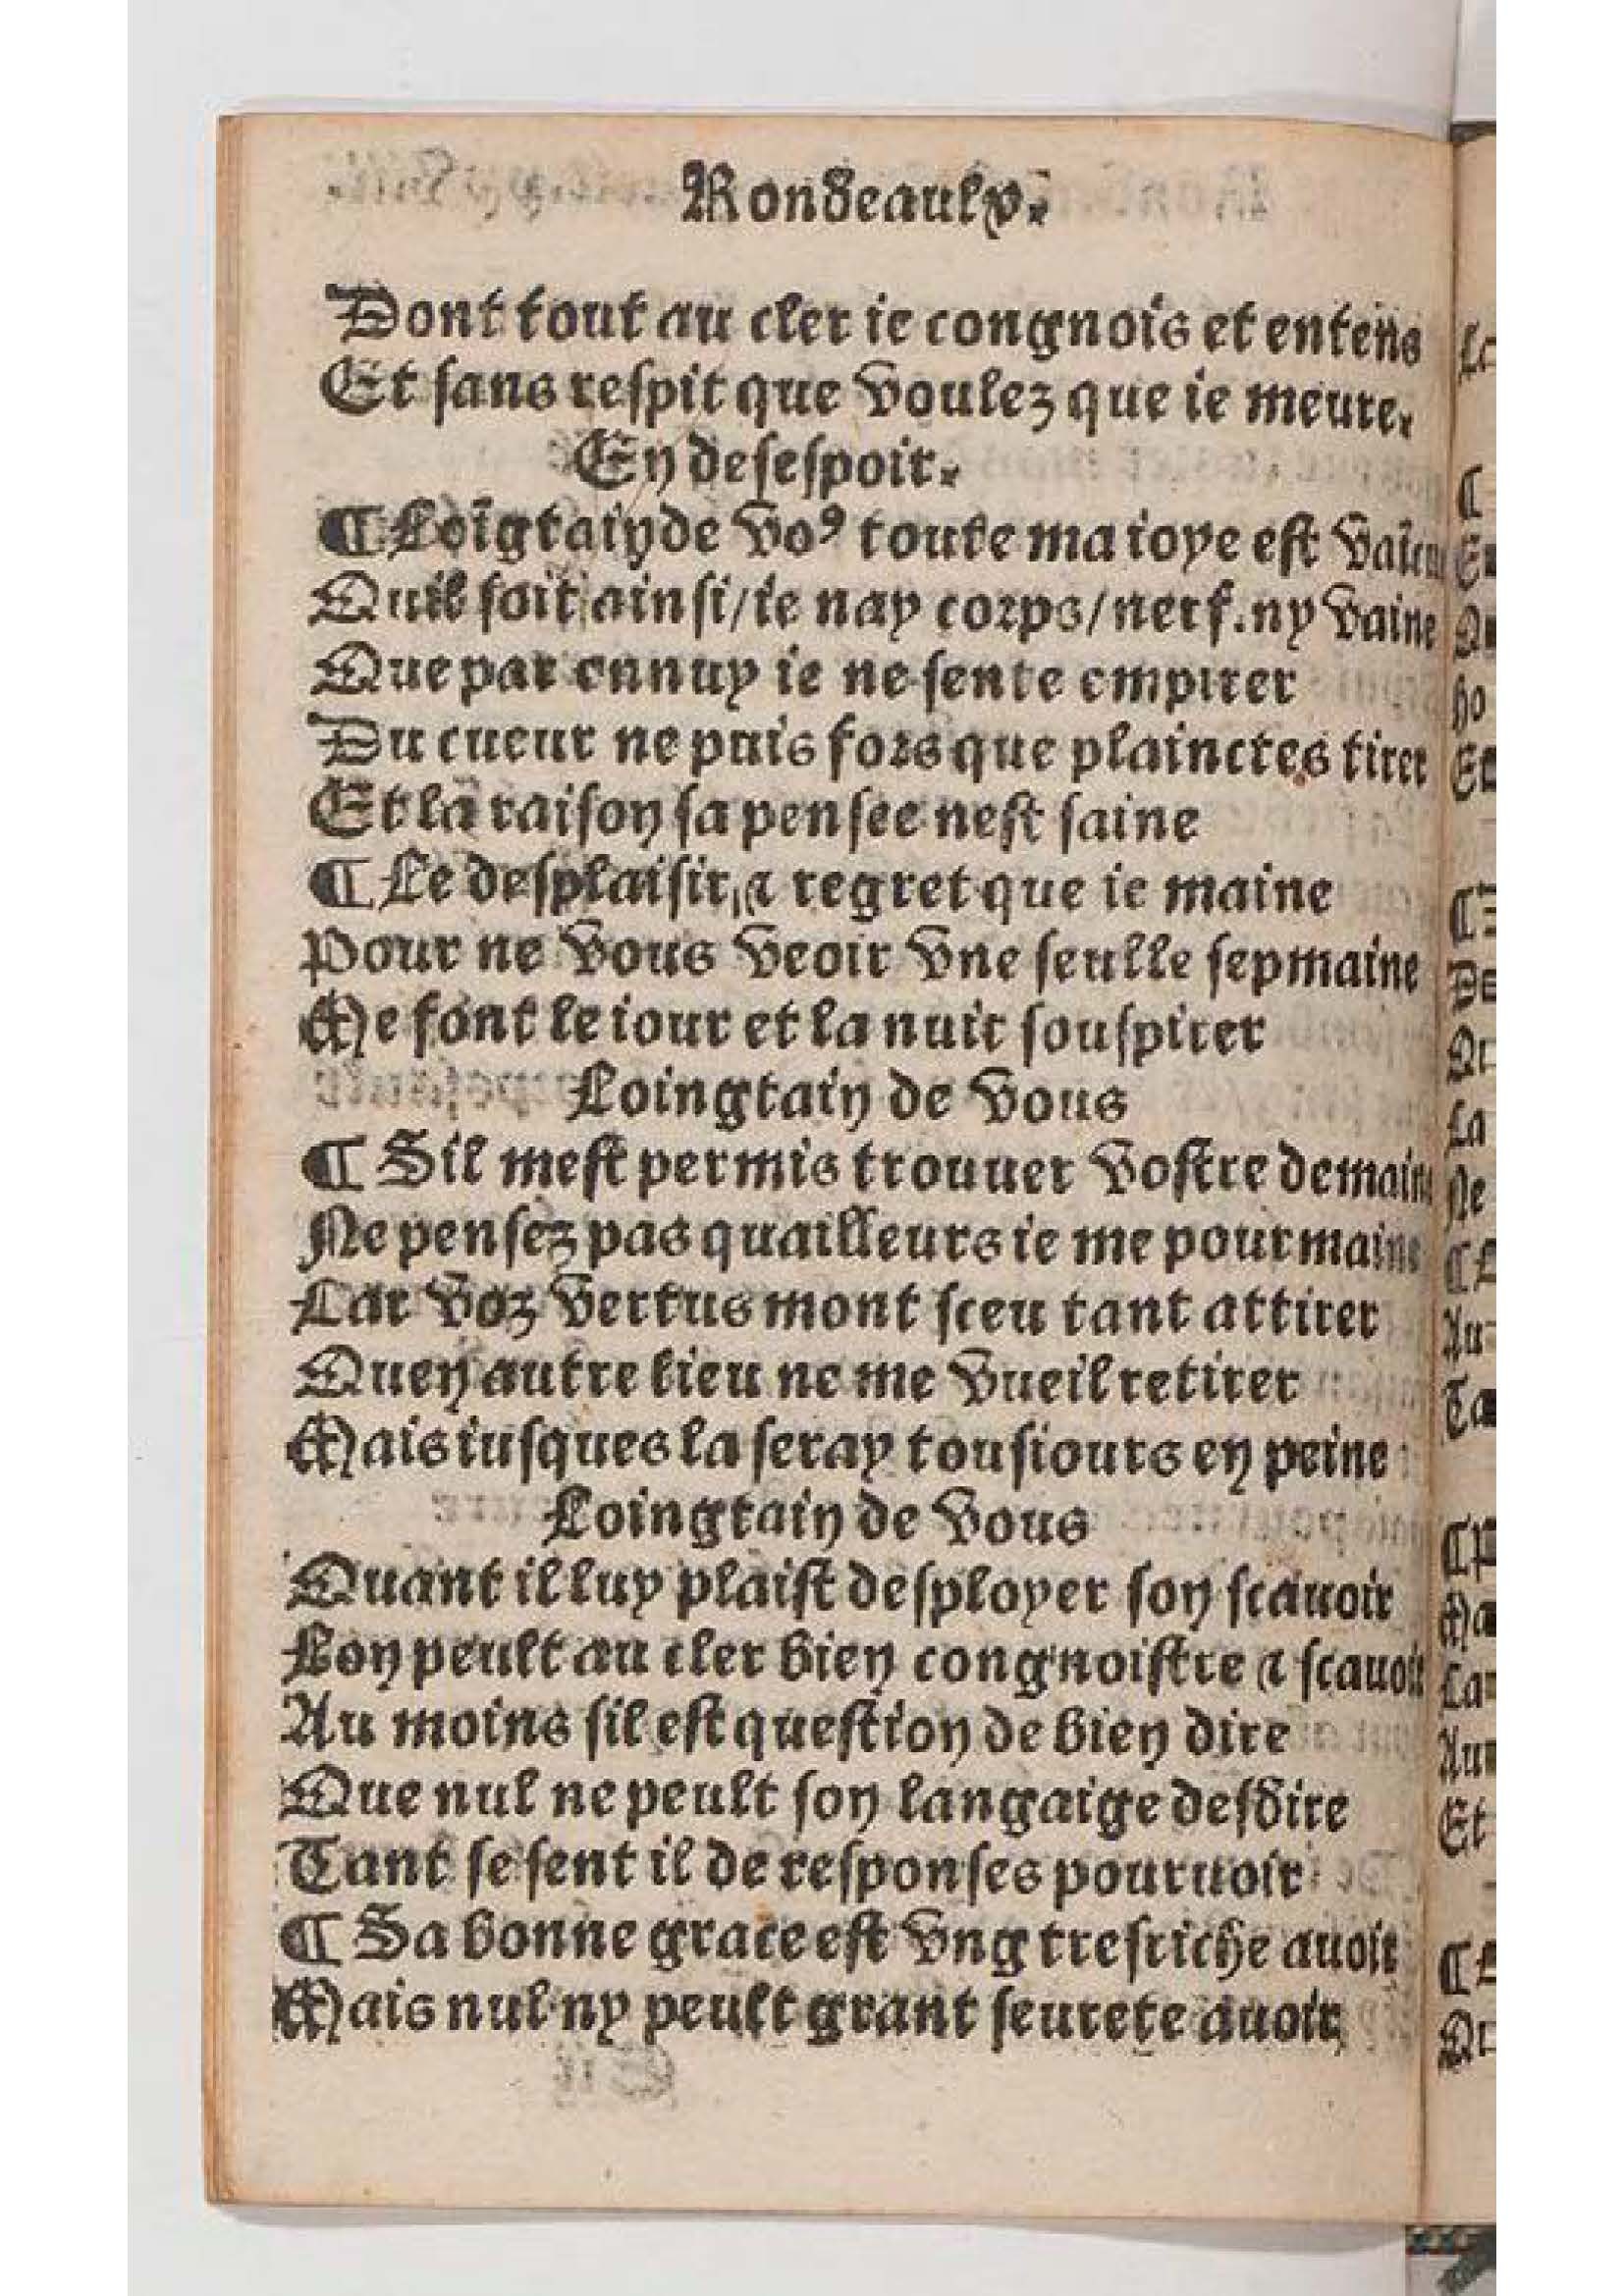 Rondeaulx.
Dont tout au cler ie congnois et entens
Et sans respit que voulez que ie meure.
En desespoir.
¶ Loīgtain de voꝰ toute ma ioye est vaine
Quil soit ainsi/ie nay corps/nerf.ny vaine
Que par ennuy ie ne sente empirer
Du cueur ne puis fors que plainctes tirer
Et la raison sa pensee nest saine
¶ Le desplaisir ⁊ regret que ie maine
Pour ne vous veoir vne seulle sepmaine
Me font le iour et la nuit souspirer
Loingtain de vous
¶ Sil mest permis trouuer vostre demaine
Ne pensez pas quailleurs ie me pourmaine
Car voz vertus mont sceu tant attirer
Quen autre lieu ne me vueil retirer
Mais iusques la seray tousiours en peine
Loingtain de vous
Quant il luy plaist desployer son scauoir
Lon peult au cler bien congnoistre ⁊ scauoir
Au moins sil est question de bien dire
Que nul ne peult son langaige desdire
Tant se sent il de responses pouruoir
¶ Sa bonne grace est vng tresriche auoir
Mais nul ny peult grant seurete auoir